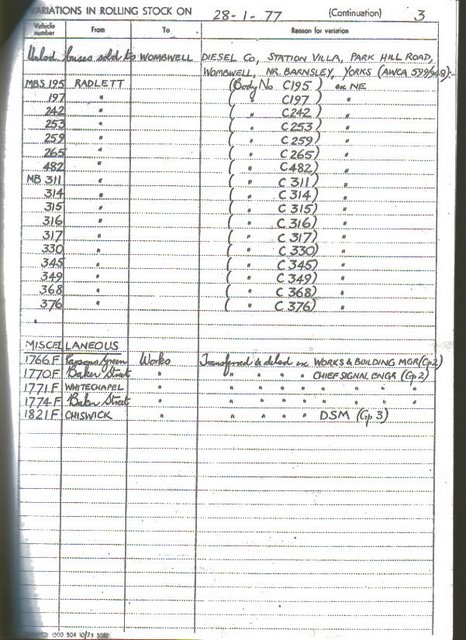 VARIATIONS IN ROLLING STOCK ON 28-1-77 (Continuation) 3
Vehicle number From To Reason for variation
buses sold to WOMBWELL DIESEL Co, STATION VILLA, PARK HILL ROAD,
WOMBWELL, NR. BARNSLEY, YORKS (AWCA 599/ ):-
MBS 195 RADLETT (Body No C195) ex NE
197 " ( " C197) "
242 " ( " C242) "
253 " ( " C253) "
259 " ( " C259) "
265 " ( " C265) "
482 " ( " C482) "
MB 311 " ( " C311) "
314 " ( " C314) "
315 " ( " C315) "
316 " ( " C316) "
317 " ( " C317) "
330 " ( " C330) "
345 " ( " C345) "
349 " ( " C349) "
368 " ( " C368) "
376 " ( " C376) "
MISCELLANEOUS
1766.F Parsons Green Works Transferred & deltd ex WORKS & BUILDING MGR (Gp2)
1770.F Baker Street " " " " " CHIEF SIGNAL ENGR (Gp2)
1771.F WHITECHAPEL " " " " " " " "
1774.F Baker Street " " " " " " " "
1821 F CHISWICK " " " " " DSM (Gp 3)
504 10/74